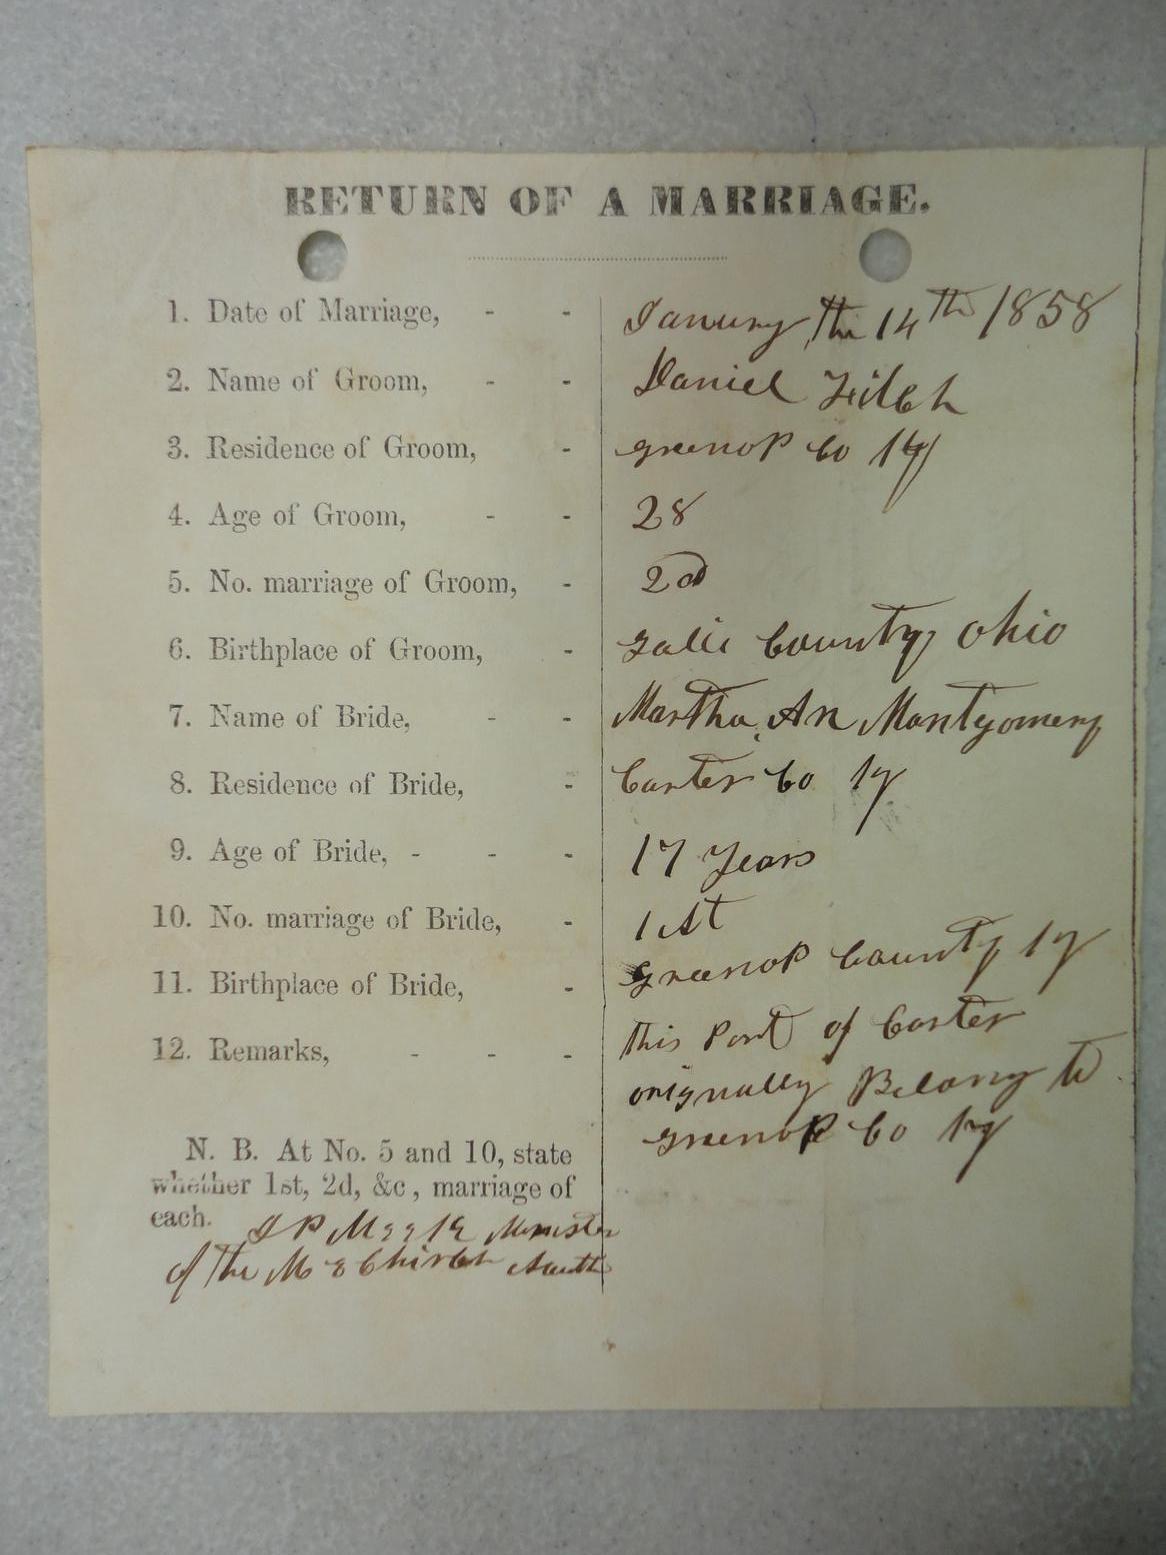 RETURN OF A MARRIAGE.
1. Date of Marriage, - - January the 14th 1858
2. Name of Groom, - - Daniel
3. Residence of Groom, - greenop Co Ky
4. Age of Groom, - - 28
5. No. marriage of Groom, - 2d
6. Birthplace of Groom, - galie County Ohio
7. Name of Bride, - - Martha An Montgomery
8. Residence of Bride, - Carter Co Ky
9. Age of Bride, - - - 17 Years
10. No. marriage of Bride, - 1st
11. Birthplace of Bride, - greenop County Ky
12. Remarks, - - - this Part of Carter
orignally Belong to
greenop Co Ky
N. B. At No. 5 and 10, state
whether 1st, 2d, &c, marriage of
each. J P Meek Minister
of the M E Church South